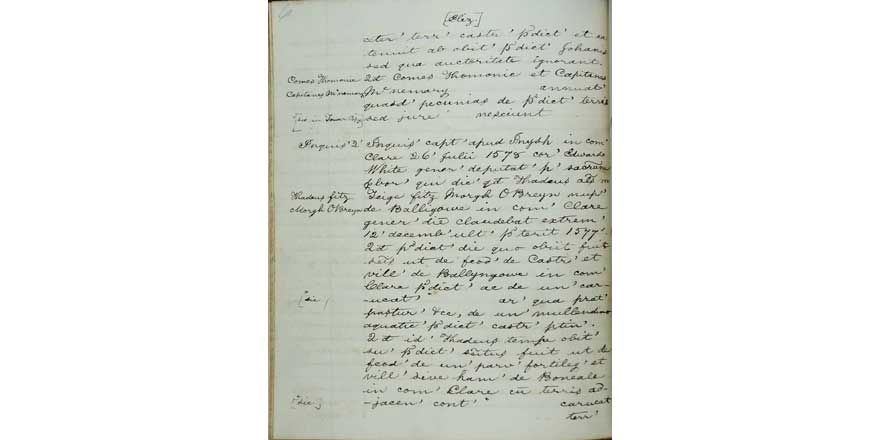 [Eliz.]
cter' terr' castr' pdict' et ea
tenuit ab obit' pdict' Johanis
sed qua auctoritate ignorant.
Comes Thomonie 2d Comes Thomonie et Capitanus
Capitaneus McNemary Mc nemary annuat'
quasd' pecunias de pdict' terris
sed jure nesciunt
Inquis' 2' Inquis' capt' apud Inysh in com'
Clare 26' Julii 1578 cor' Edwardo
White gener' deputat' p' sacram
jbor' qui die' qd Thadeus als
Thadeus fitz Teige fitz Morgh O Breyn nup'
Morgh O Breyn de Balligowe in com' Clare
gener' die claudebat extrem'
12' decemb' ult' pterit 1577'.
2d pdict' die quo obiit fuit
seis' ut de feod' de Castr' et
vill' de Ballyngowe in com'
Clare pdict' ac de un' car-
[sic] -ucat' ar' qua prat'
pastur' &ce, de un' mullendino
aquatic' pdict' castr' ptin'.
2d id' Thadeus tempe obit'
su' pdict' seitus fuit ut de
feod' de un' parv' fortileg' et
vill' sive ham' de Boneale
in com' Clare cu terris ad-
[sic] -jacen' cont' carucat
terr'